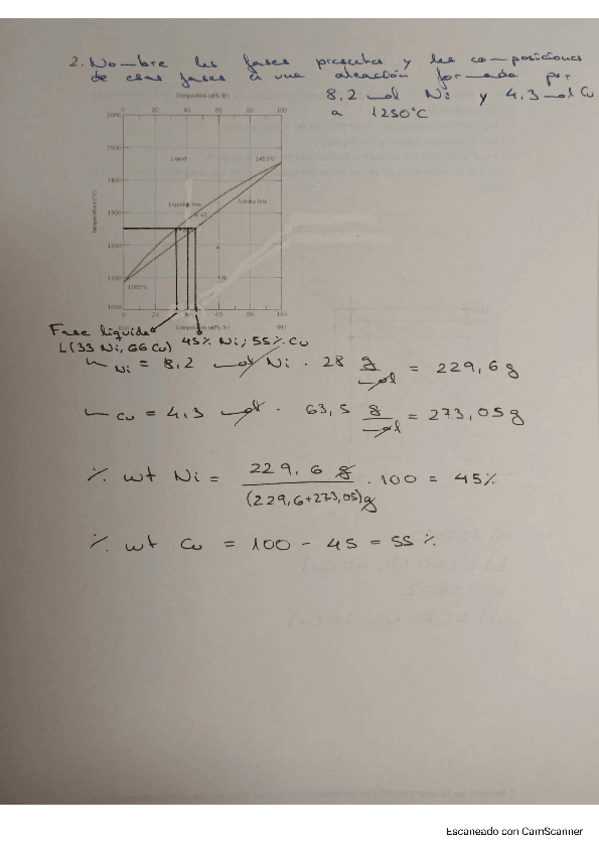 2. Nombre las fases presentes y las composiciones
de esas fases a una aleación formada por
8,2 mol Ni y 4,3 mol Cu
a 1250°C
0 20 40 60 80 100
1600
1500
1400
1300
1200
1100
1000
Temperature (°C)
Liquid
1453°C
Liquidus line
Solidus line
1085°C
0 20 40 60 80 100
(Ni)
Fase líquida
L(33 Ni, 66 Cu) 45% Ni; 55% Cu
m Ni = 8,2 mol Ni · 28 g/mol = 229,6 g
m Cu = 4,3 mol · 63,5 g/mol = 273,05 g
% wt Ni = 229,6 g / (229,6+273,05)g · 100 = 45%
% wt Cu = 100 - 45 = 55 %
Escaneado con CamScanner